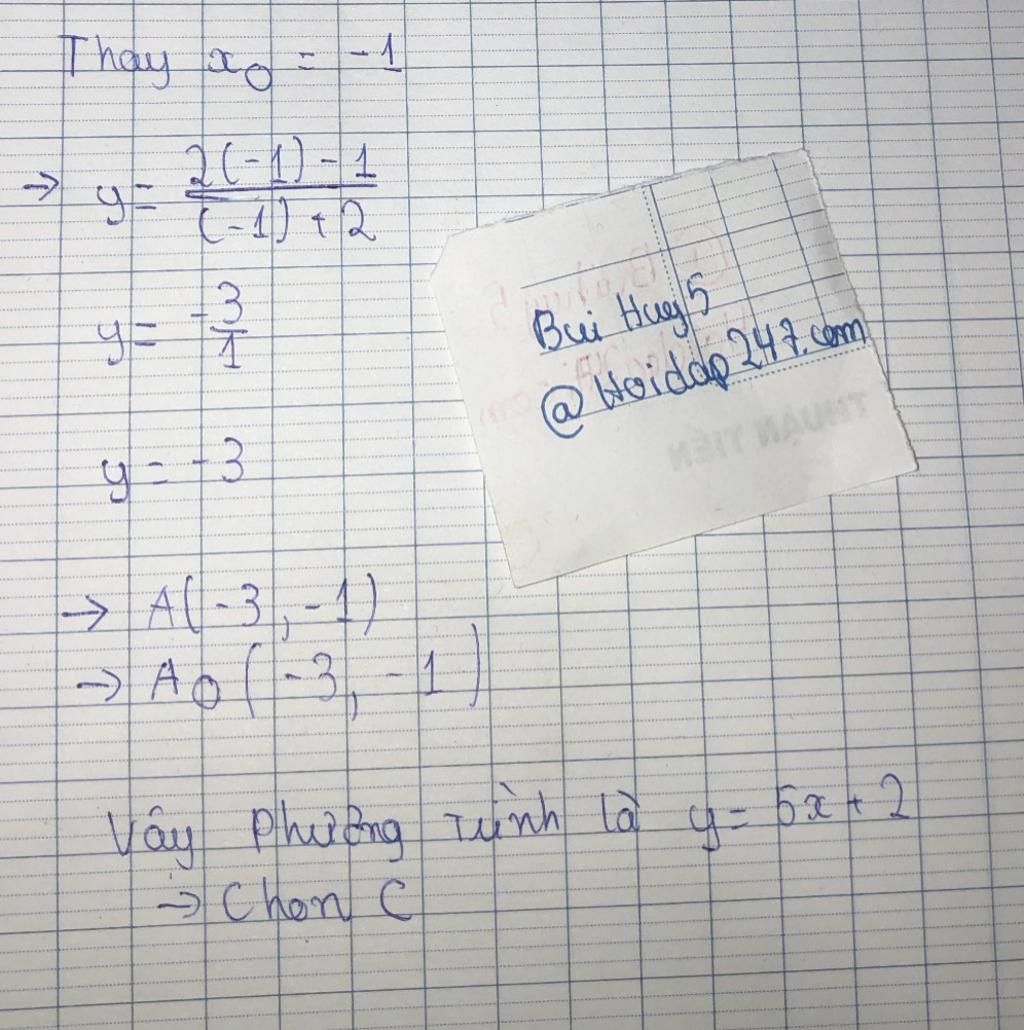 Thay x₀ = -1
→ y = (2(-1) - 1)/((-1) + 2)
y = -3/1
y = -3
→ A(-3, -1)
→ A₀(-3, -1)
Vậy Phương Trình là y = 5x + 2
→ Chọn C
Bui Huy5
@Hoidap247.com
THUẬN TIẾN